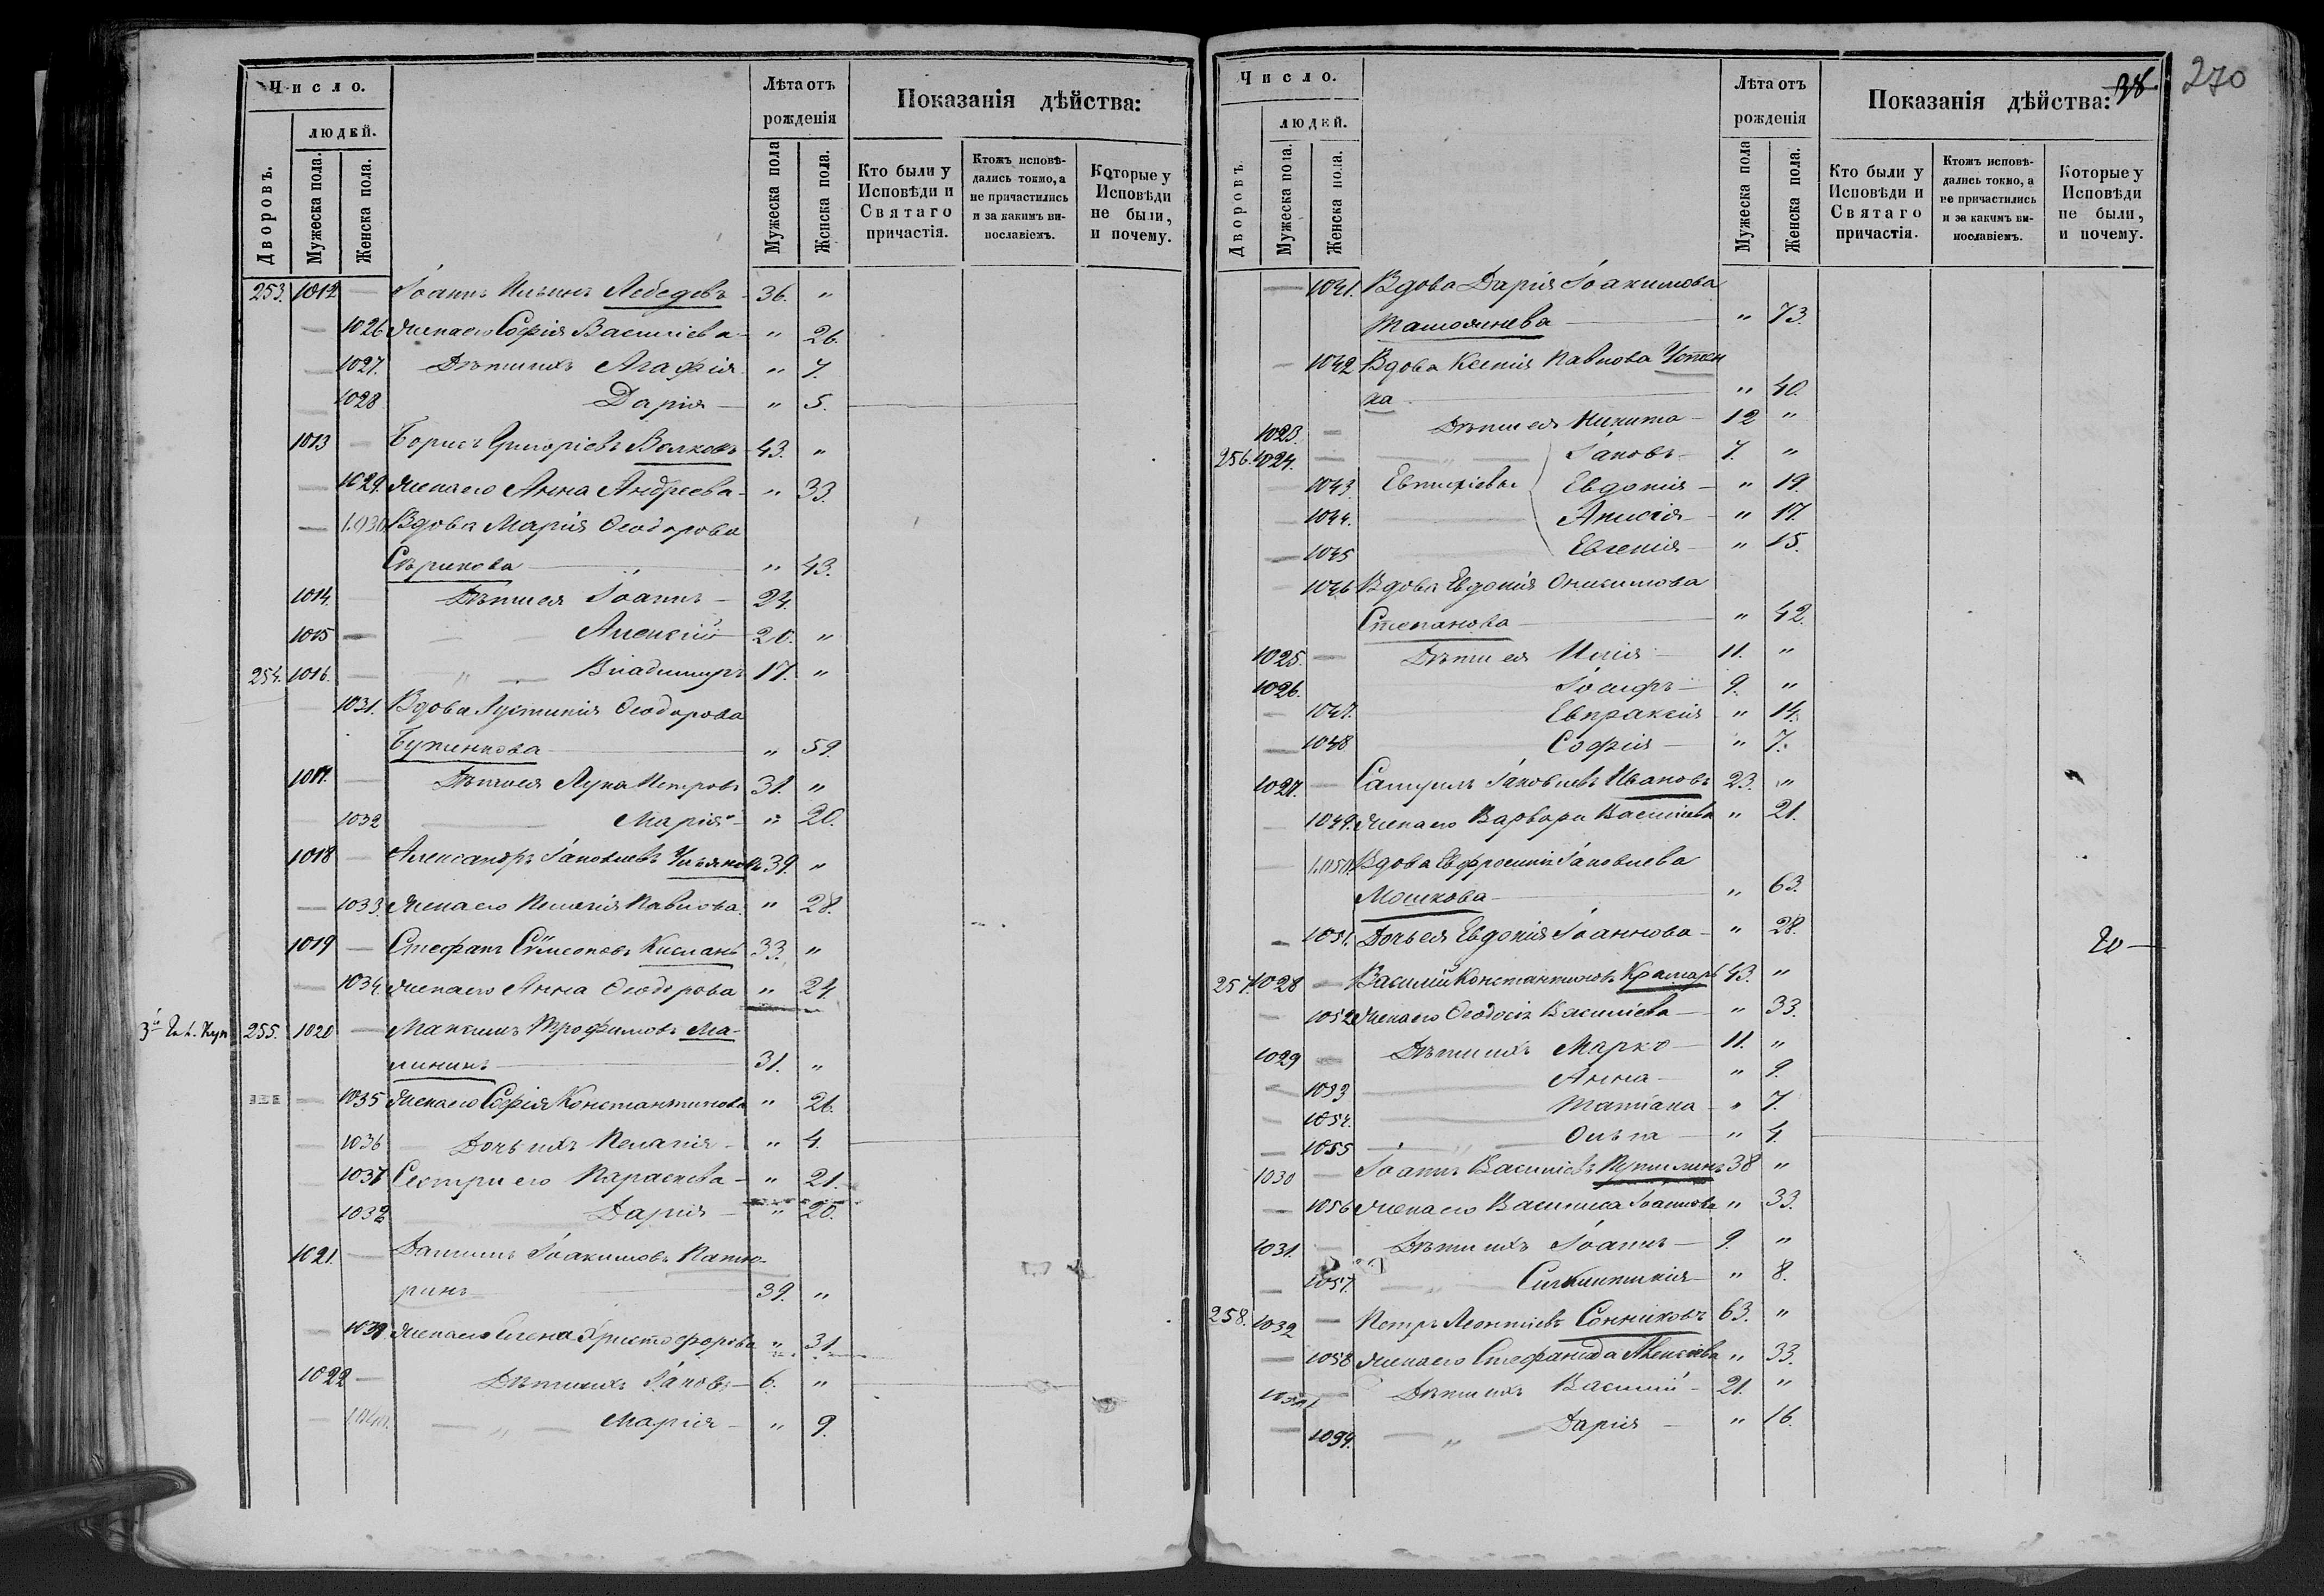 Число.
людей.
Дворовъ.
Мужеска пола.
Женска пола.
Лѣта отъ рожденія
Мужеска пола
Женска пола.
Показанія дѣйства:
Кто были у Исповѣди и Святаго причастія.
Ктожъ исповѣ-
дались токмо, а
не причастились
и за какимъ ви-
нославіемъ.
Которые у
Исповѣди
не были,
и почему.
253. 1012 — Іоаннъ Ильинъ Лебедевъ 36. "
— 1026 Жена его Софія Василіева " 26.
— 1027. Дѣти ихъ Агафія " 7.
— 1028 Дарія — " 5.
1013 — Борисъ Григоріевъ Волковъ 43. "
— 1029. Жена его Анна Андреева — " 33.
— 1030 Вдова Марія Ѳеодорова
Сѣрикова — " 43.
1014. — Дѣти ея Іоаннъ — 24.
1015 — Алексій 20. "
254. 1016. — " — Владимиръ 17. "
1031. Вдова Іустинія Ѳеодорова
— " 59.
1017. — Дѣти ея Лука Петровъ 31. "
— 1032 Марія — " 20.
1018 — Александръ Іаковлевъ Ульяновъ 39. "
— 1033. Жена его Пелагія Павлова. " 28.
1019 — Стефанъ Симеоновъ 33. "
— 1034. Жена его Анна Ѳеодорова " 24.
255. 1020 — Максимъ Трофимовъ Ма-
лининъ — 31. "
— 1035 Жена его Софія Константинова " 26.
— 1036 — Дочь ихъ Пелагія — " 4.
— 1037 Сестры его Параскева — " 21.
1038 Дарія — " 20.
1021. — Даніилъ Іоакимовъ
39. "
— 1039 Жена его Елена Христофорова " 31.
1022 — Дѣти ихъ Іаковъ — 6. "
— 1040. — " — Марія — " 9.
270
38
Число.
людей.
Дворовъ.
Мужеска пола.
Женска пола.
Лѣта отъ рожденія
Мужеска пола
Женска пола.
Показанія дѣйства:
Кто были у
Исповѣди и
Святаго
причастія.
Ктожъ исповѣ-
дались токмо, а
не причастились
и за какимъ ви-
нославіемъ.
Которые у
Исповѣди
не были,
и почему.
— 1041. Вдова Дарія Іоакимова
— " 73.
— 1042 Вдова Ксенія Павлова
ка — " 40.
1023. — Дѣти ея Никита — 12 "
256. 1024. — " — Іаковъ — 7. "
— 1043. Евтихіевы Евдокія — " 19.
1044. Анисія — " 17.
— 1045 Евгенія — " 15.
1046 Вдова Евдокія Онисимова
Степанова — " 42.
1025. — Дѣти ея Илія — 11. "
1026. Іосифъ — 9. "
— 1047. Евпраксія — " 14.
— 1048 Софія — " 7.
1027. — Самуилъ Іаковлевъ Ивановъ 23. "
— 1049. Жена его Варвара Василіева " 21.
1050. Вдова Евфросинія Іаковлева
Мошкова — " 63.
— 1051. Дочь ея Евдокія Іоаннова — " 28.
257. 1028 — Василій Константиновъ Крамаръ 43. "
— 1052 Жена его Ѳеодосія Василіева — " 33.
1029 — Дѣти ихъ Марко — 11. "
— 1053 Анна — " 9.
— 1054. Татіана — " 7.
— 1055 — " — Ольга — " 4.
1030 — Іоаннъ Василіевъ Путилинъ 38 "
— 1056 Жена его Василиса Іоаннова " 33.
1031. — Дѣти ихъ Іоаннъ — 9. "
— 1057. — " — Синклитикія — " 8.
258. 1032 — Петръ Леонтіевъ Сонниковъ 63. "
— 1058 Жена его Стефанида Алексіева " 33.
— Дѣти ихъ Василій — 21. "
— — " — Дарія — " 16.